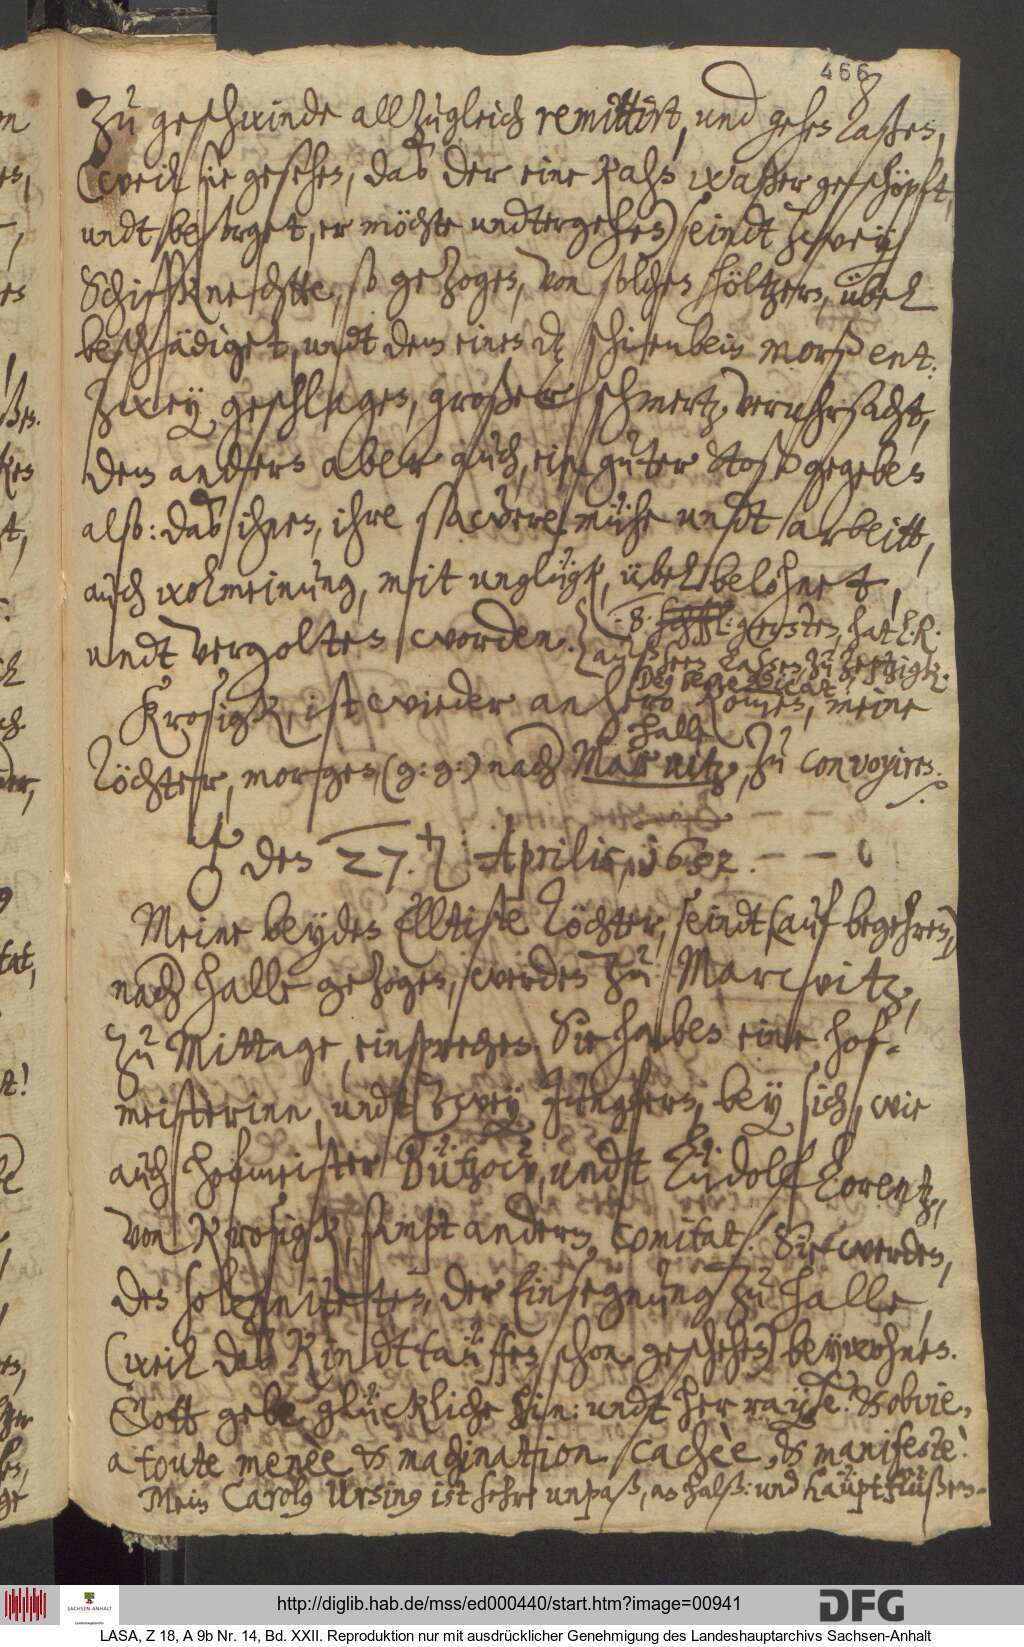 466
zu geschwinde allzugleich remittirt, und gehen laßen,
(weil sie gesehen, daß der eine Kahn waßer geschöpft,
undt besorget, er möchte undtergehen) seindt zweij
Schiffknechtte, so gezogen, von solchen höltzern, übel
beschädiget, undt dem einen dz schinenbein morß ent¬
zwey geschlagen, großer schmertz veruhrsacht,
dem andern aber auch, ein guter stoß gegeben
also: daß ihnen, ihre sawere mühe undt arbeitt,
auch wolmeinung, mit unglügk, übel belohnet,
undt vergolten worden.
8 gersten, hat
außsehen laßen,
Krosigk, ist wieder anhero kommen, meine
Halle
Töchter, morgen (g: g:) nach zu convoyiren.
den 27. Aprilis, 1652.
Meine beyden Elltiste Töchter, seindt (auf begehren)
nach Halle gezogen, werden zu Marwitz,
zu Mittage, einsprechen. Sie haben eine hof¬
meisterinn, undt zwey Jungfern, bey sich, wie
auch hofmeister Bützow, undt Rudolf Lorentz,
von Krosigk, sampt andern comitat. Sie werden,
den solenniteten, der Einsegnung zu Halle,
(weil das Kindttauffen schon geschehen) beywohnen.
Gott gebe glückliche hin: undt her rayse! & obvie,
a toute menèe & machination cachèe, & manifeste!
Mein Carolus Ursinus ist sehr unpaß, an halß: und häuptflüßen¬
http://diglib.hab.de/mss/ed000440/start.htm?image=00941
SACHSEN-ANHALT
Landeshauptarchiv
DFG
LASA, Z 18, A 9b Nr. 14, Bd. XXII. Reproduktion nur mit ausdrücklicher Genehmigung des Landeshauptarchivs Sachsen-Anhalt